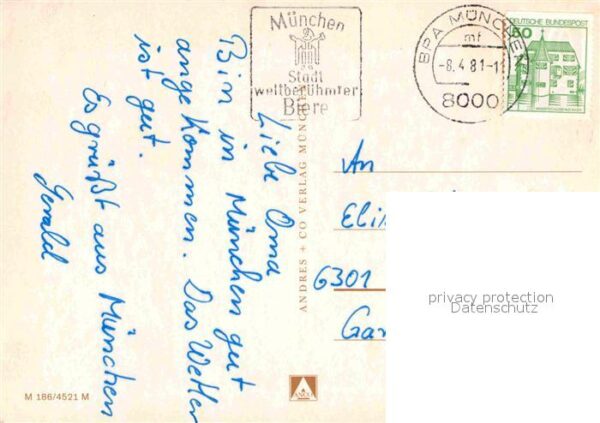 Liebe Oma
Bin in München gut
angekommen. Das Wetter
ist gut.
Es grüßt aus München
Gerald
München
Stadt
weltberühmter
Biere
BPA MÜNCHEN
mf
-8.4.81-1
8000
50
DEUTSCHE BUNDESPOST
ANDRES + CO VERLAG MÜNCHEN
An
6301
privacy protection
Datenschutz
M 186/4521 M